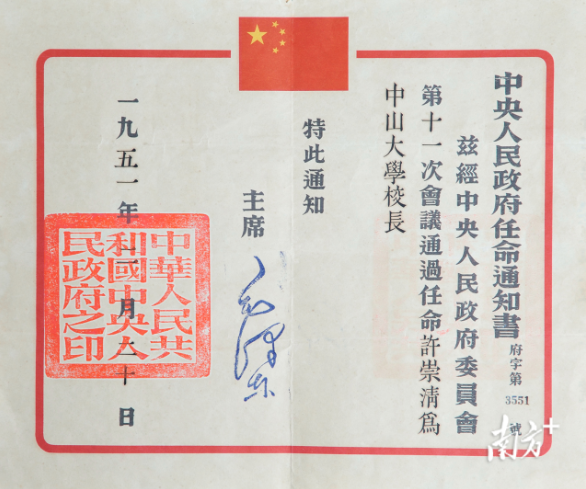 中央人民政府任命通知書
府字第3551號
茲經中央人民政府委員會
第十一次會議通過任命許崇清為
中山大學校長
特此通知
主席
毛澤东
一九五一年二月二十日
中華人民共
和國中央人
民政府之印
南方+